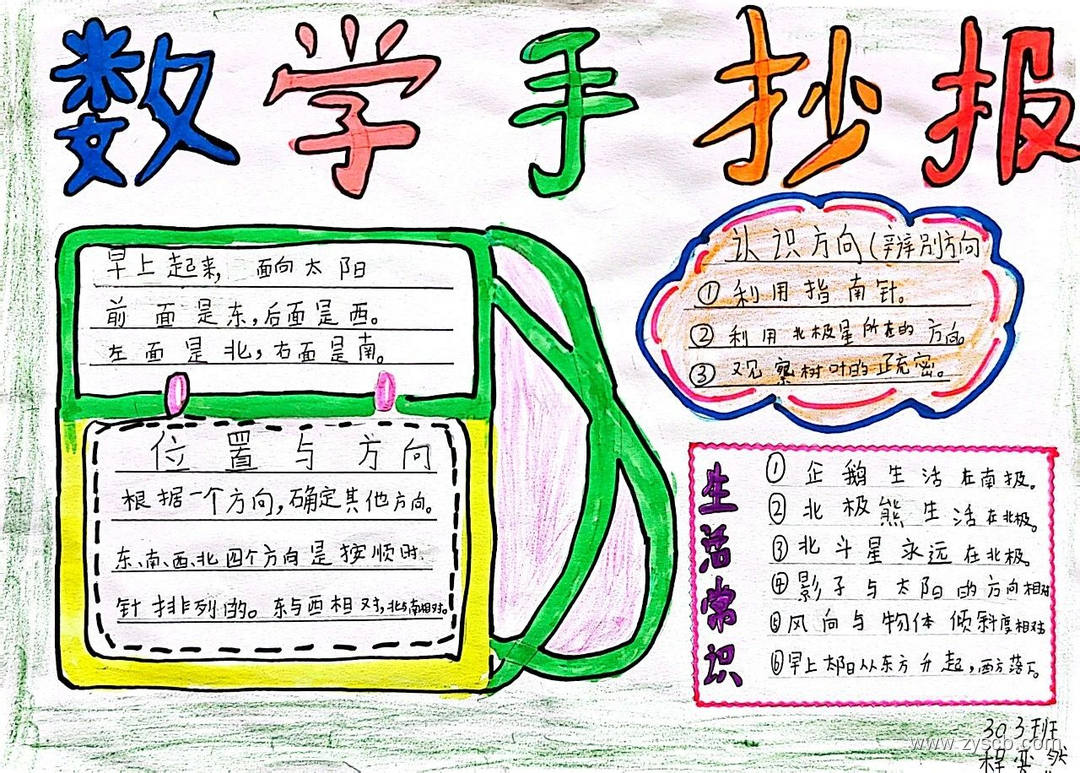 数学手抄报
早上起来, 面向太阳
前面是东,后面是西。
左面是北,右面是南。
位置与方向
根据一个方向,确定其他方向。
东、南、西、北四个方向是按顺时
针排列的。东与西相对,北与南相对。
认识方向(辨别方向
①利用指南针。
②利用北极星所在的方向。
③观察树叶的疏密。
生活常识
①企鹅生活在南极。
②北极熊生活在北极。
③北斗星永远在北极。
④影子与太阳的方向相对
⑤风向与物体倾斜度相对
⑥早上太阳从东方升起,西方落下。
303班
www.zyscb.com